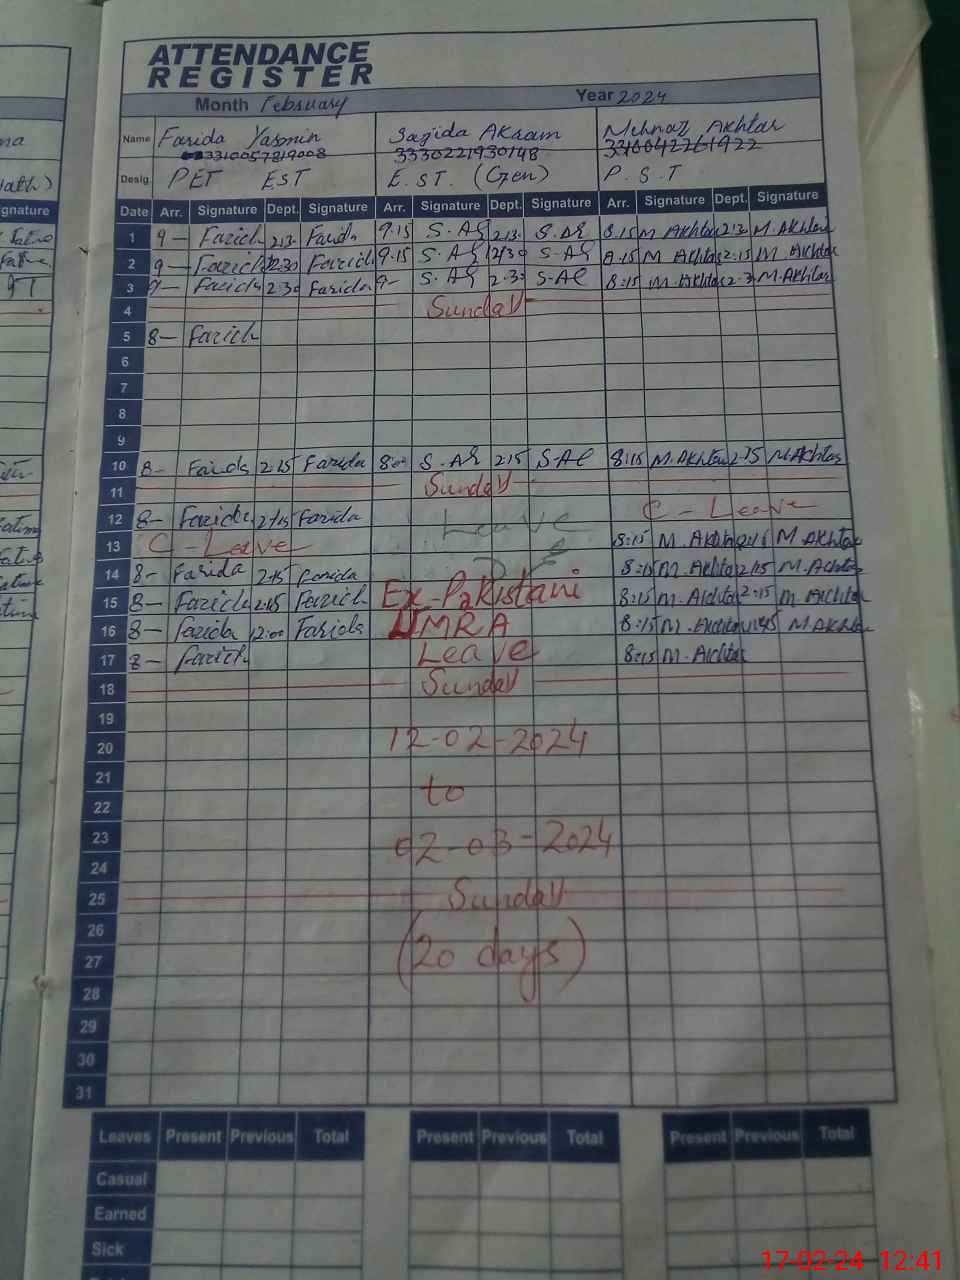 ATTENDANCE
REGISTER
Month February Year 2024
Name Farida Yasmin Sajida Akram Mehnaz Akhtar
3310057819008 3330221930148 3310042261922
Desig. PET EST E.ST. (Gen) P.S.T
Date Arr. Signature Dept. Signature Arr. Signature Dept. Signature Arr. Signature Dept. Signature
1 9- Farida 2.13 Farida 9.15 S.AS 2.13 8:15 M Akhtar 2.13 M.Akhtar
2 9- Farida 2.30 Farida 9.15 S.AS 8:15 M Akhtar 2:15 M.Akhtar
3 9- Farida 2.30 Farida 9- S.AS 2.30 8:15 M.Akhtar M.Akhtar
4 Sunday
5 8- Farida
6
7
8
9
10 8- Farida 2.15 Farida 8:00 S.AS 2.15 8:15 M.Akhtar 2.15 M.Akhtar
11 Sunday
12 8- Farida 2:15 Farida Leave C-Leave
13 C-Leave 8:15 M.Akhtar M Akhtar
14 8- Farida 2:15 Farida 8:15 M.Akhtar 2:15 M.Akhtar
15 8- Farida 2:15 Farida Ex-Pakistani 8:15 M.Akhtar 2:15 M.Akhtar
16 8- Farida 12:00 Farida UMRA 8:15 M.Akhtar M Akhtar
17 8- Farida Leave 8:15 M.Akhtar
18 Sunday
19
20 12-02-2024
21
22 to
23
24 02-03-2024
25 Sunday
26
27 (20 days)
28
29
30
31
Leaves Present Previous Total Present Previous Total Present Previous Total
Casual
Earned
Sick
17-02-24 12:41